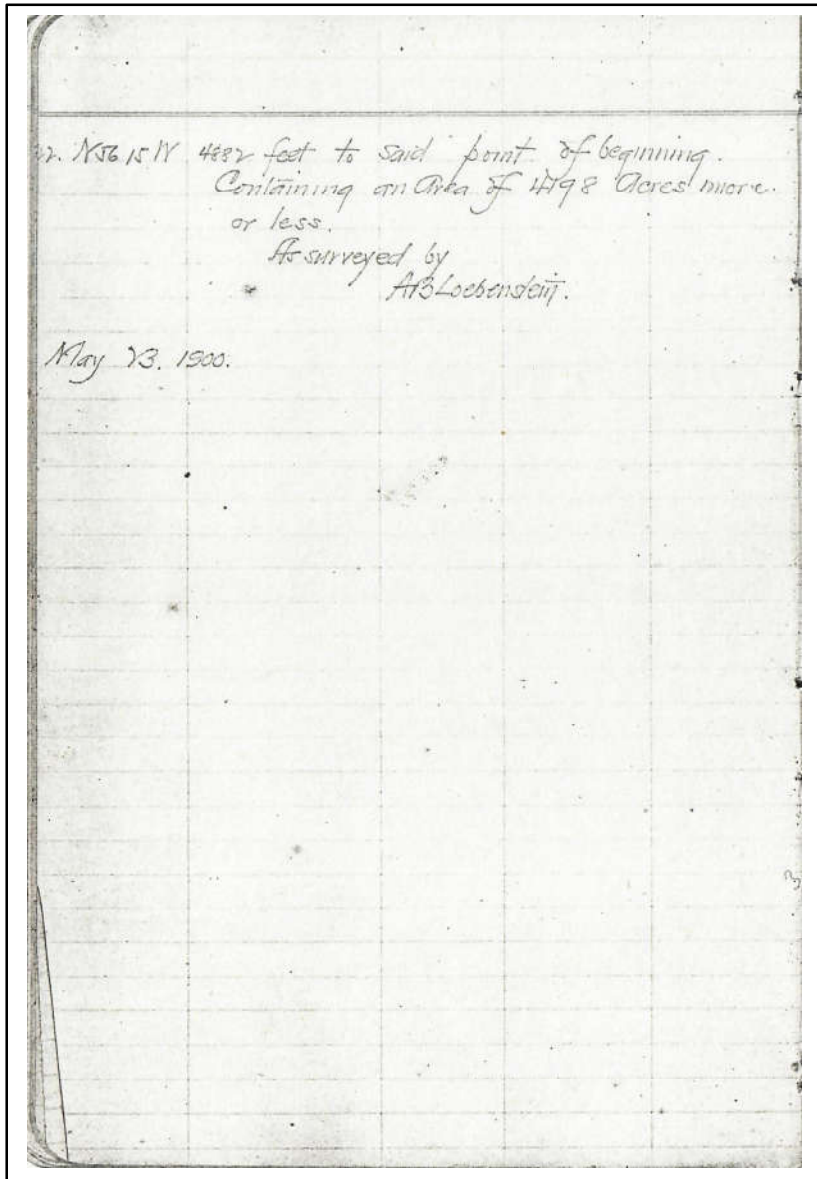 22. N56 15 W 4882 feet to said point of beginning.
Containing an Area of 4798 Acres more
or less.
As surveyed by
AB Loebenstein.
May 23. 1900.